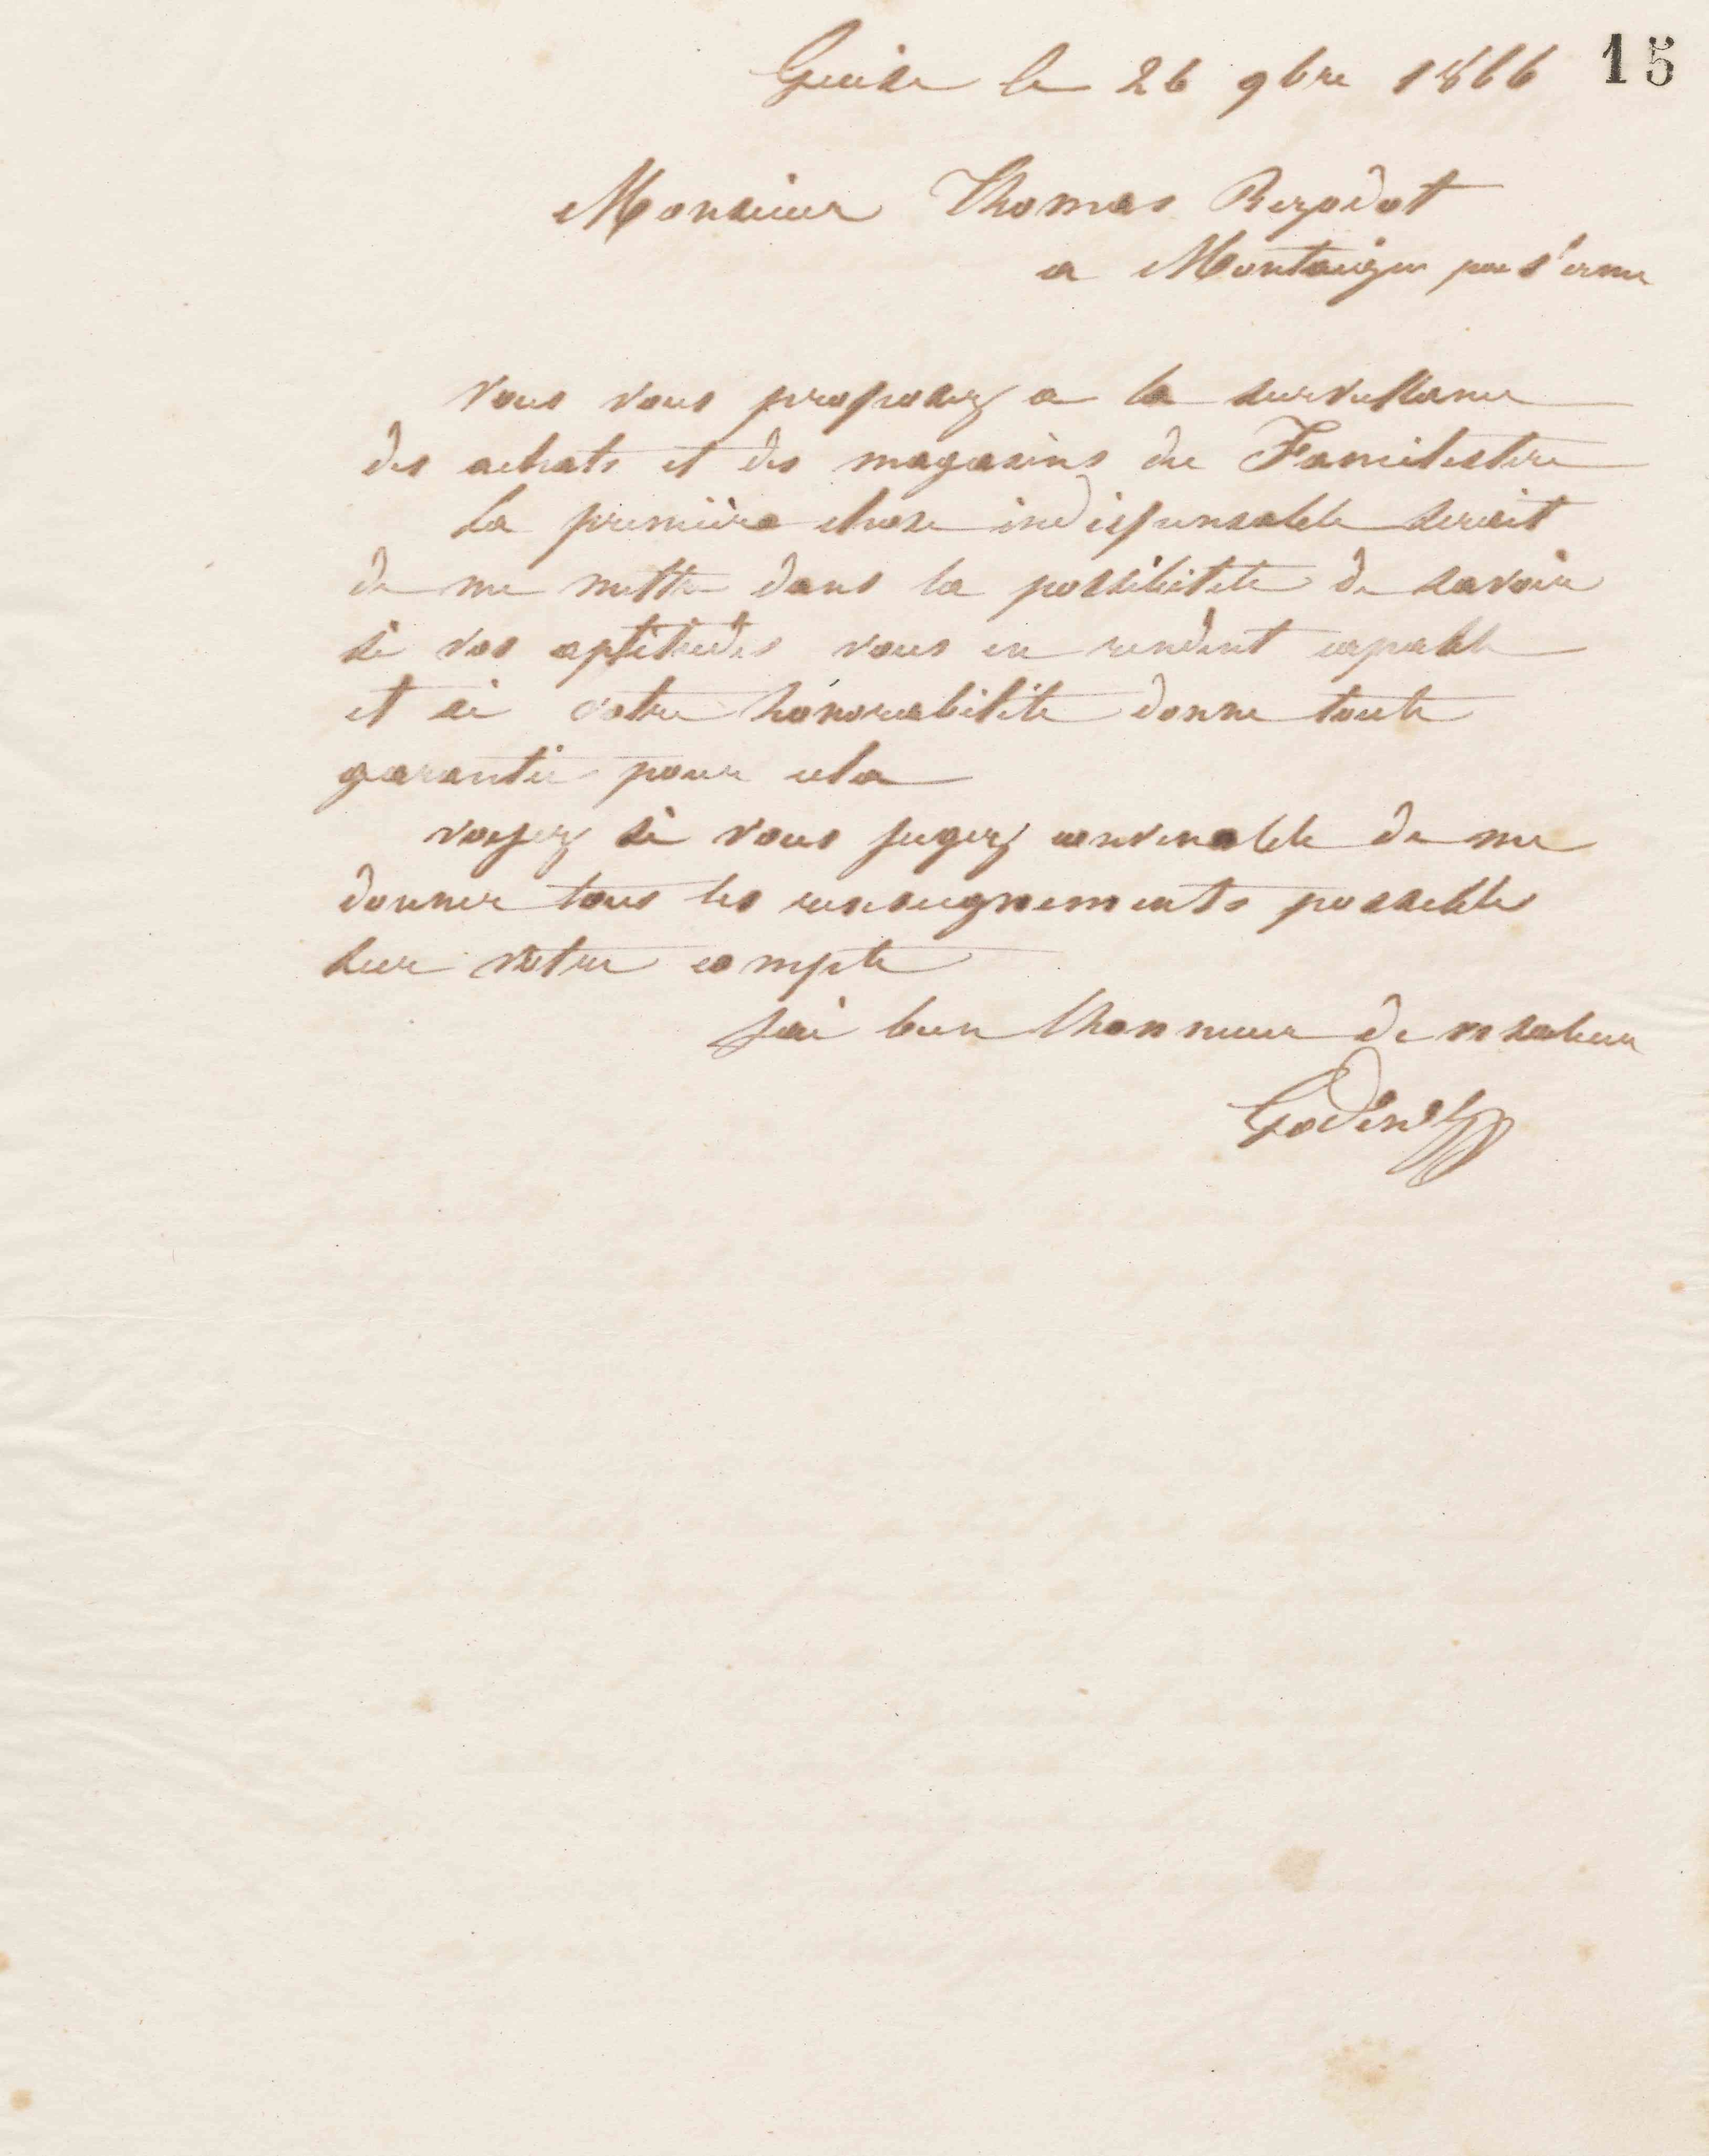 15
Guise le 26 9bre 1866
Monsieur Thomas
a Montaigu par s'erme
Vous vous proposez a la surveillance
des achats et des magasins du Familistere
La première chose indispensable serait
de me mettre dans la possibilite de savoir
si vos aptitudes vous en rendent capable
et si votre honorabilité donne toute
garantie pour cela
voyez si vous jugez convenable de me
donner tous les renseignements possible
sur votre compte
Jai bien lhonneur de vs saluer
Godin